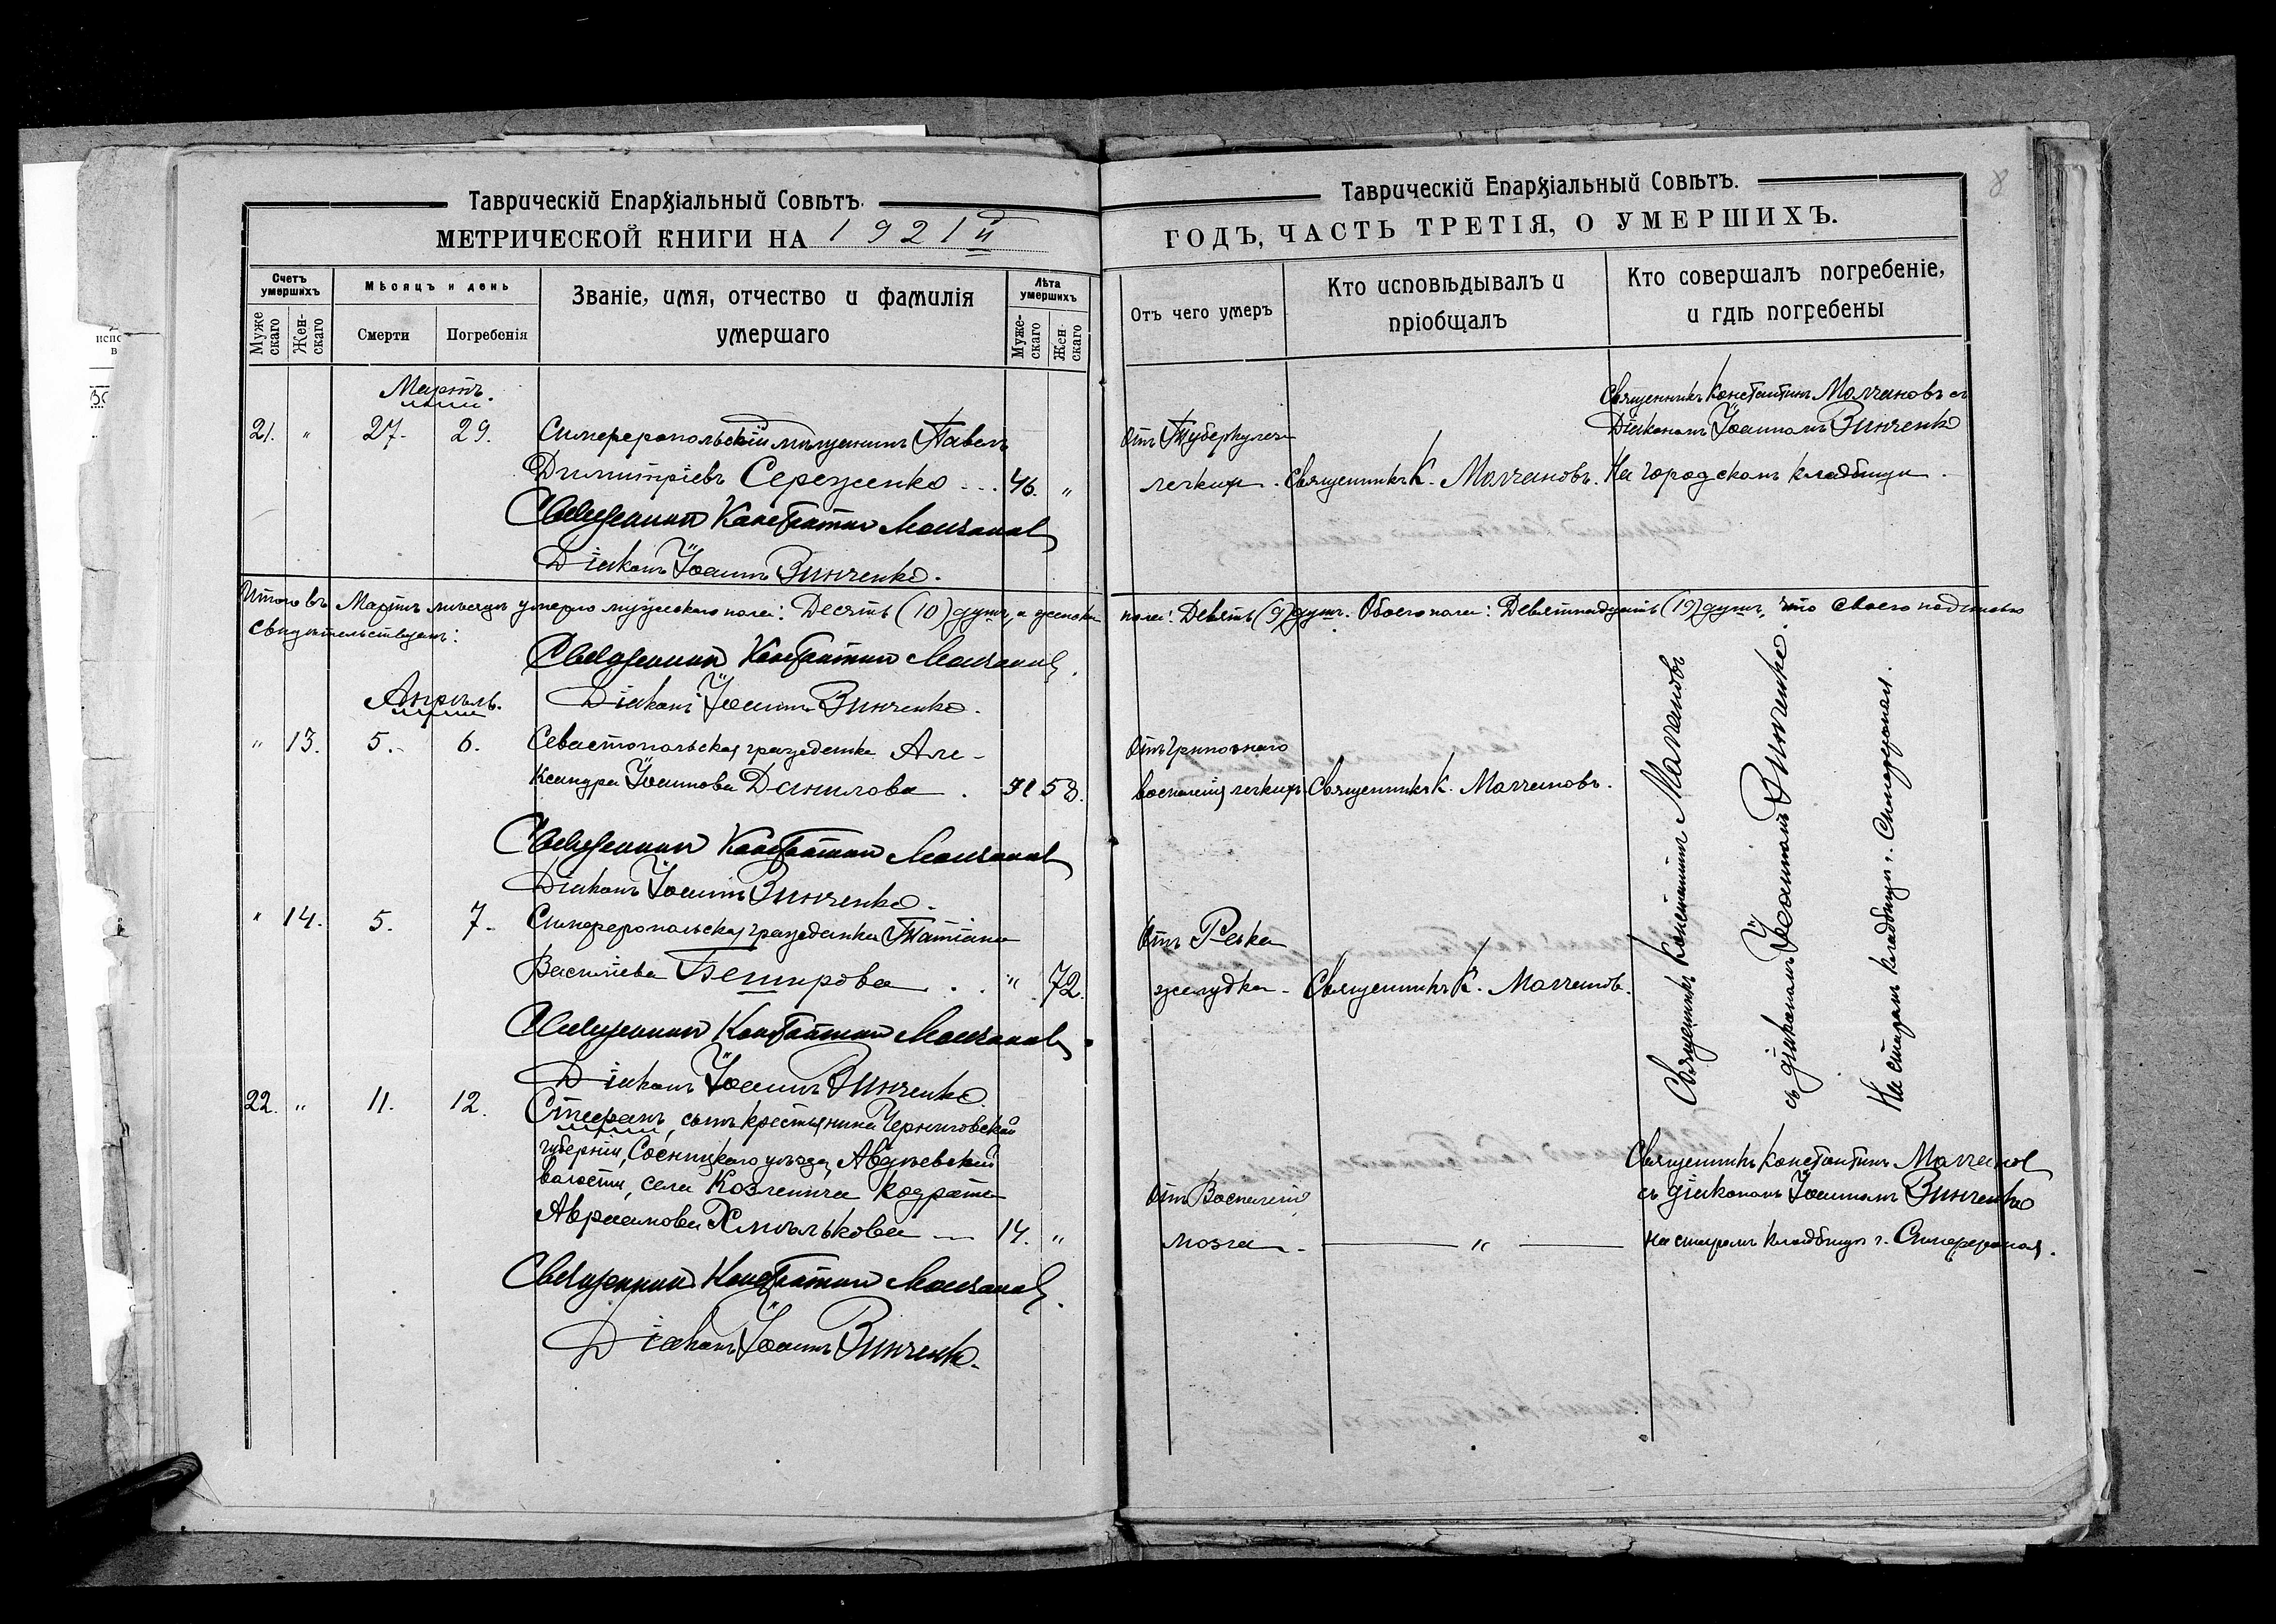 Таврическій Епархіальный Совѣтъ.
МЕТРИЧЕСКОЙ КНИГИ НА 1921й
Счетъ умершихъ
Муже скаго
Жен- скаго
Мѣсяцъ и день
Смерти
Погребенія
Званіе, имя, отчество и фамилія
умершаго
Лѣта умершихъ
Муже- скаго
Жен- скаго
Мартъ.
21. " 27. 29. Симферопольскій мѣщанинъ Павелъ
Димитріевъ Сереженко 46. "
Священникъ Константинъ Молчановъ
Діаконъ Іоаннъ Винченко.
Итого въ Мартѣ мѣсяцѣ умерло мужескаго пола: Десять (10) душъ, а женскаго
свидѣтельствуемъ:
Священникъ Константинъ Молчановъ.
Діаконъ Іоаннъ Винченко.
Апрѣль.
" 13. 5. 6. Севастопольская гражданка Але-
ксандра Іоаннова Данилова 58.
Священникъ Константинъ Молчановъ
Діаконъ Іоаннъ Винченко.
" 14. 5. 7. Симферопольская гражданка Татіана
Василіева Бештрова " 72.
Священникъ Константинъ Молчановъ
Діаконъ Іоаннъ Винченко
22. " 11. 12. Стефанъ, сынъ крестьянина Черниговской
губерніи, Сосницкаго уѣзда, Авдѣевской
волости, села Козленича Кодрата
Авраамова Хмѣлькова 14. "
Священникъ Константинъ Молчановъ.
Діаконъ Іоаннъ Винченко.
8
Таврическій Епархіальный Совѣтъ.
ГОДЪ, ЧАСТЬ ТРЕТІЯ, О УМЕРШИХЪ.
Отъ чего умеръ
Кто исповѣдывалъ и
пріобщалъ
Кто совершалъ погребеніе,
и гдѣ погребены
Священникъ Константинъ Молчановъ съ
Отъ Туберкулеза
Діакономъ Іоанномъ Винченко
легкихъ. Священникъ К. Молчановъ. На городскомъ кладбищѣ.
пола: Девять (9) душъ. Обоего пола: Девятнадцать (19) душъ, что своею подписью
Отъ Гриппознаго
воспаленія легкихъ Священникъ К. Молчановъ.
Отъ Рака
желудка. Священникъ К. Молчановъ.
Священникъ Константинъ Молчановъ
съ діакономъ Іоанномъ Винченко.
На старомъ кладбищѣ г. Симферополя.
Отъ Воспаленія
мозга. "
Священникъ Константинъ Молчановъ
съ діакономъ Іоанномъ Винченко
на старомъ кладбищѣ г. Симферополя.